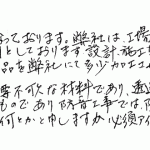 なっております。弊社は、工場
としております 設計、施工
品を弊社にて多少加工
需不欠な材料であり、透
ものであり 防音工事では、
何とかと申しますか 必須アイ